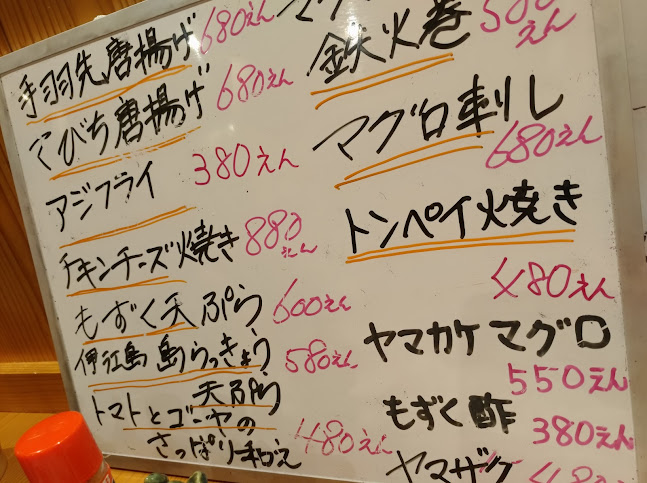 手羽先唐揚げ 680えん
でびち唐揚げ 680えん
アジフライ 380えん
チキンチーズ焼き 880えん
もずく天ぷら 600えん
伊江島 島らっきょう 580えん
天ぷら
トマトとゴーヤの
さっぱり和え 480えん
鉄火巻 500えん
マグロ刺し
680えん
トンペイ焼き
480えん
ヤマカケマグロ
550えん
もずく酢 380えん